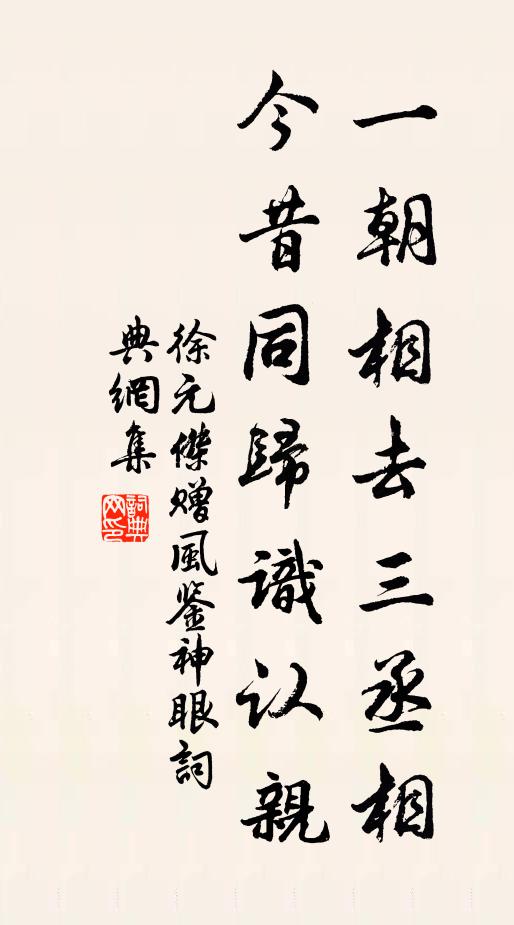 一朝相去三丞相
今昔同歸識认親
徐元傑赠風鉴神眼詞
典網集
詞典
网印